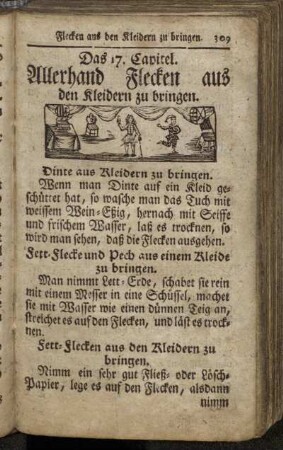 Flecken aus den Kleidern zu bringen. 309
Das 17. Capitel.
Allerhand Flecken aus
den Kleidern zu bringen.
Dinte aus Kleidern zu bringen.
Wenn man Dinte auf ein Kleid ge-
schüttet hat, so wasche man das Tuch mit
weissem Wein-Eßig, hernach mit Seiffe
und frischem Wasser, laß es trocknen, so
wird man sehen, daß die Flecken ausgehen.
Fett-Flecke und Pech aus einem Kleide
zu bringen.
Man nimmt Lett-Erde, schabet sie rein
mit einem Messer in eine Schüssel, machet
sie mit Wasser wie einen dünnen Teig an,
streichet es auf den Flecken, und läst es trock-
nen.
Fett-Flecken aus den Kleidern zu
bringen.
Nimm ein sehr gut Fließ- oder Lösch-
Papier, lege es auf den Flecken, alsdann
nimm